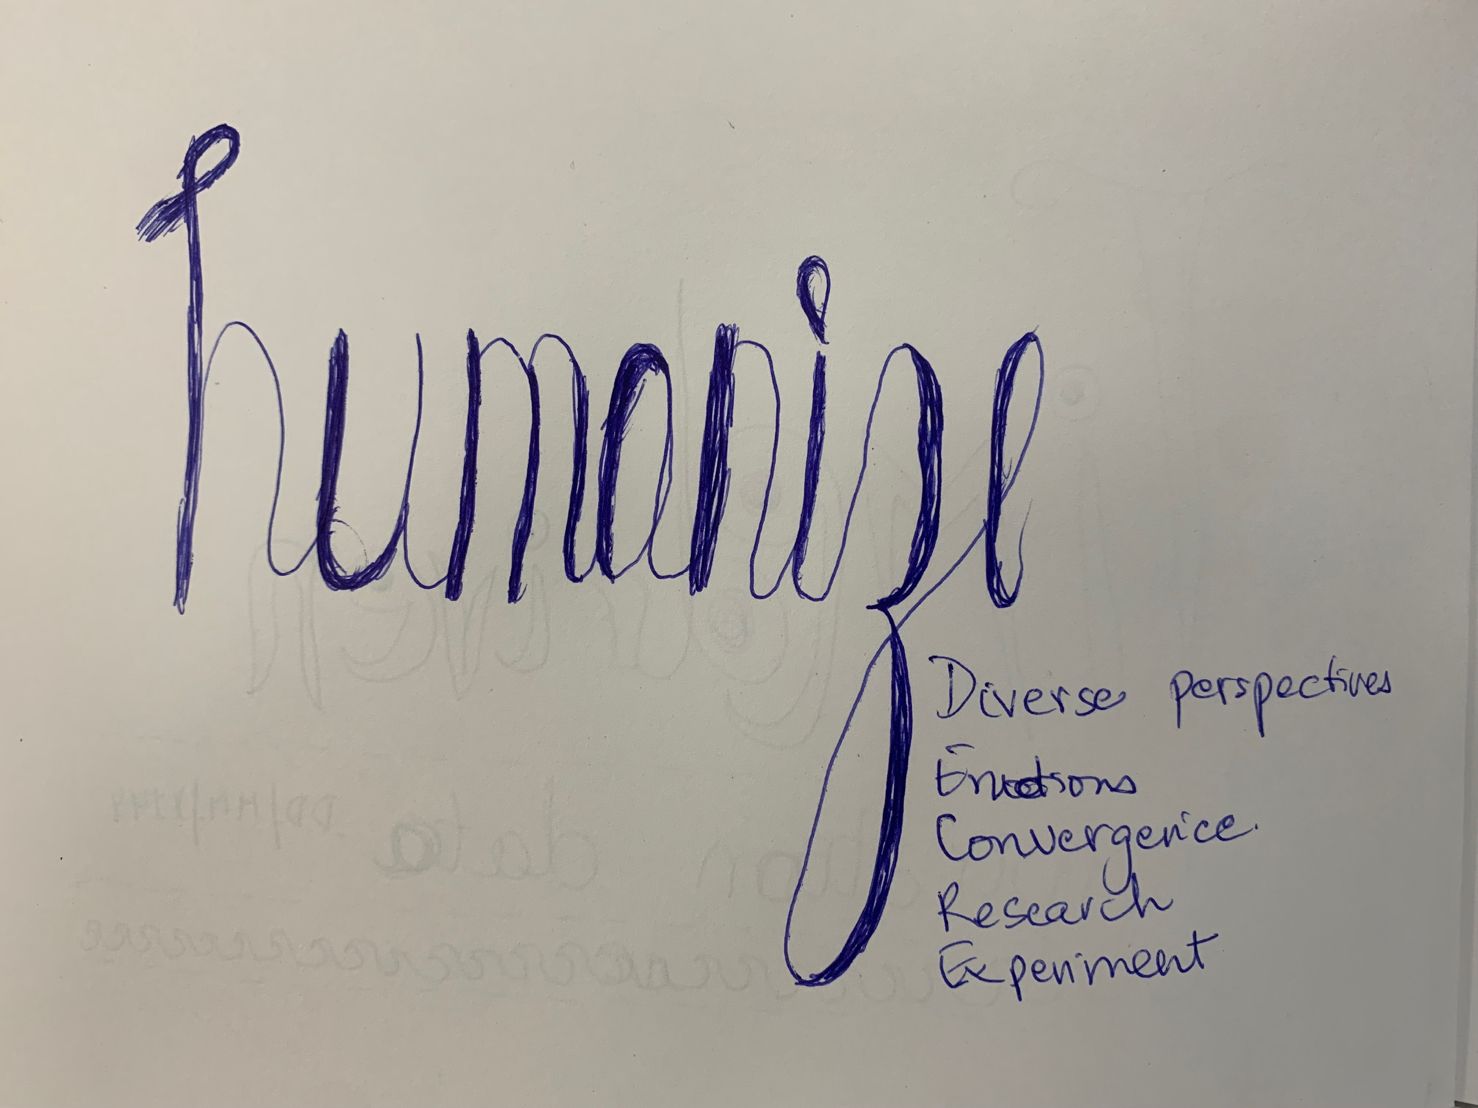 humanize
Diverse perspectives
Emotions
Convergence
Research
Experiment